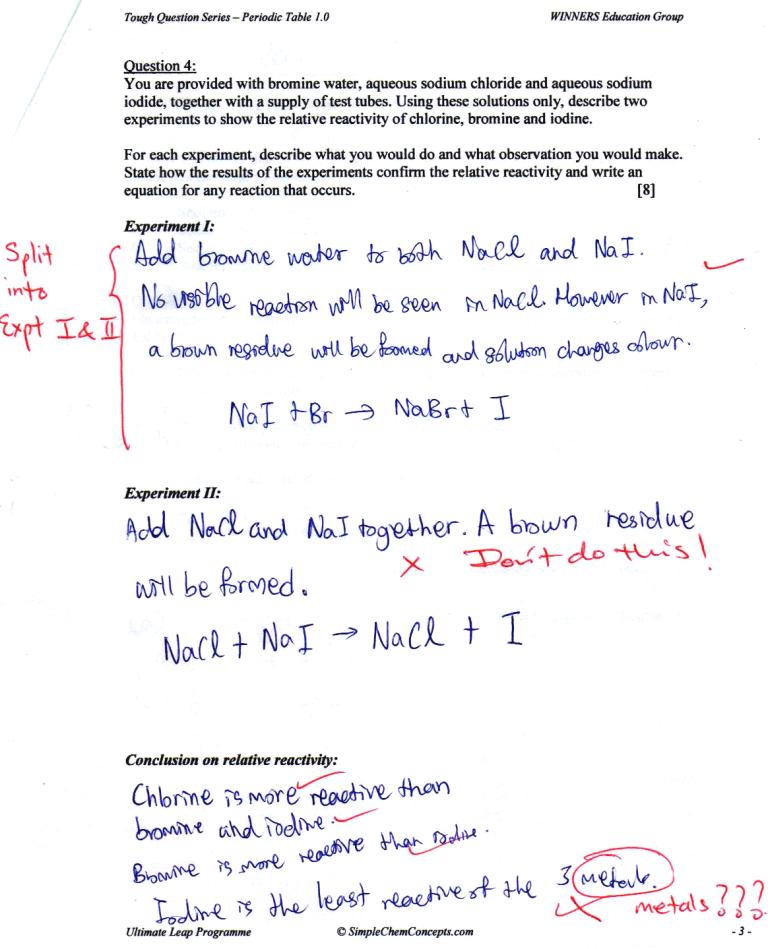 Tough Question Series – Periodic Table 1.0 WINNERS Education Group
Question 4:
You are provided with bromine water, aqueous sodium chloride and aqueous sodium
iodide, together with a supply of test tubes. Using these solutions only, describe two
experiments to show the relative reactivity of chlorine, bromine and iodine.
For each experiment, describe what you would do and what observation you would make.
State how the results of the experiments confirm the relative reactivity and write an
equation for any reaction that occurs. [8]
Experiment I:
Split
into
Expt I & II
Add bromine water to both NaCl and NaI.
No visible reaction will be seen in NaCl. However in NaI,
a brown residue will be formed and solution changes colour.
NaI + Br → NaBr + I
Experiment II:
Add NaCl and NaI together. A brown residue
✗ Don't do this!
will be formed.
NaCl + NaI → NaCl + I
Conclusion on relative reactivity:
Chlorine is more reactive than
bromine and iodine.
Bromine is more reactive than iodine.
Iodine is the least reactive of the 3 metals.
metals???
Ultimate Leap Programme © SimpleChemConcepts.com - 3 -